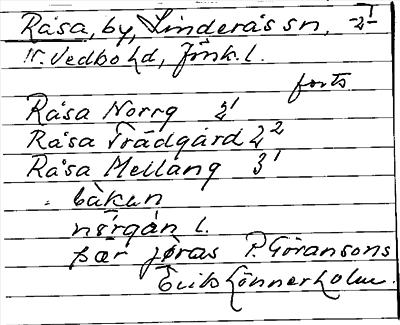 Råsa, by, Linderås sn, -2-1
N. Vedbo hd, Jönk. l.
forts
Råsa Norrg 2 1
Råsa Trädgård 2 2
Råsa Mellang 3 1
båkən
nørgån l.
pær jöras P. Göransons
Erik Lönnerholm.